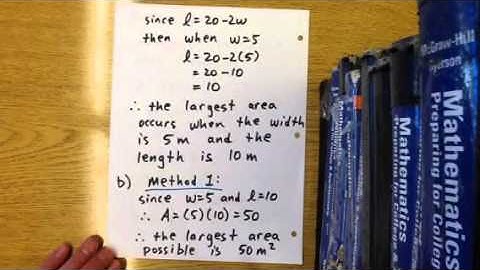 since l = 20-2w
then when w=5
l = 20-2(5)
= 20-10
= 10
∴ the largest area
occurs when the width
is 5 m and the
length is 10 m
b) Method 1:
since w=5 and l=10
∴ A=(5)(10)=50
∴ the largest area
possible is 50 m²
Mathematics
Preparing for College &
Mathematics
Preparing for College
McGraw-Hill
Ryerson